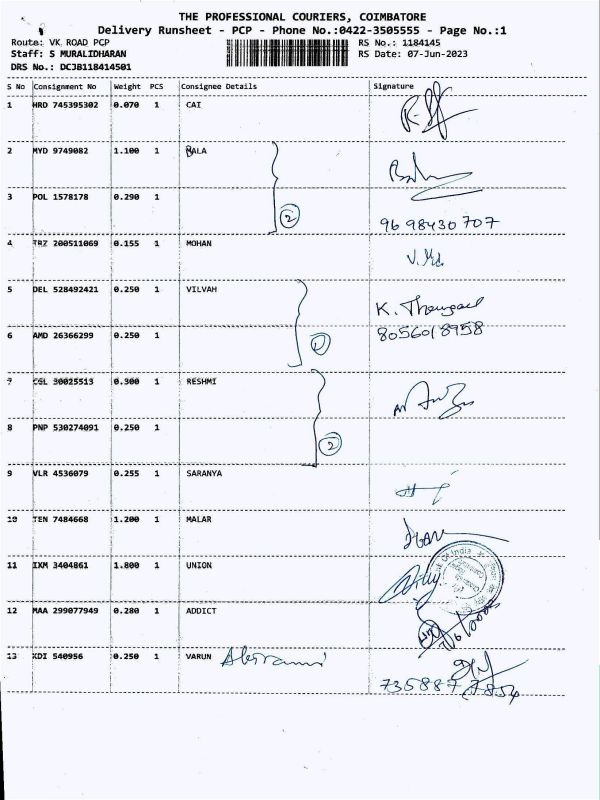 THE PROFESSIONAL COURIERS, COIMBATORE
Delivery Runsheet - PCP - Phone No.:0422-3505555 - Page No.:1
Route: VK ROAD PCP
RS No.: 1184145
Staff: S MURALIDHARAN
RS Date: 07-Jun-2023
DRS No.: DCJB118414501
S No Consignment No Weight PCS Consignee Details Signature
1 HRD 745395302 0.070 1 CAI
2 MYD 9749082 1.100 1 BALA
3 POL 1578178 0.290 1
2
9698430707
4 TRZ 200511069 0.155 1 MOHAN
5 DEL 528492421 0.250 1 VILVAH
6 AMD 26366299 0.250 1
8056018958
7 CGL 30025513 0.300 1 RESHMI
8 PNP 530274091 0.250 1
2
9 VLR 4536079 0.255 1 SARANYA
10 TEN 7484668 1.200 1 MALAR
11 IXM 3404861 1.800 1 UNION
12 MAA 299077949 0.280 1 ADDICT
13 KDI 540956 0.250 1 VARUN